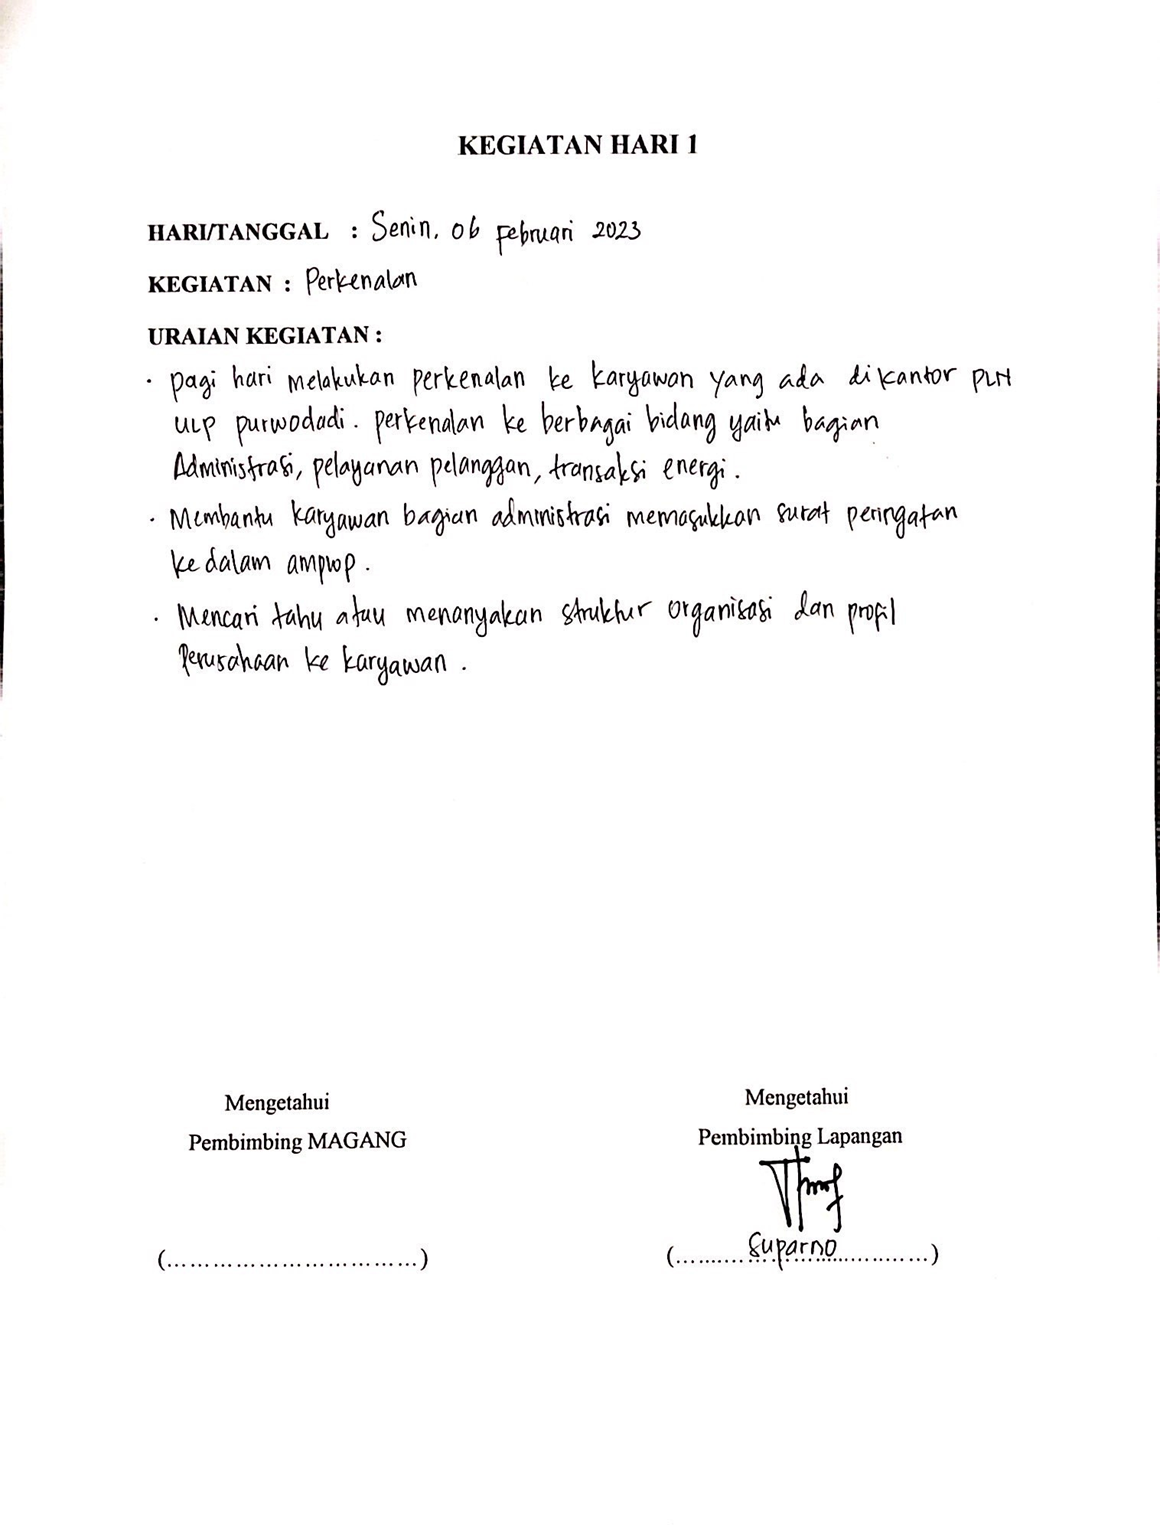 KEGIATAN HARI 1
HARI/TANGGAL : Senin, 06 Februari 2023
KEGIATAN : Perkenalan
URAIAN KEGIATAN :
· pagi hari melakukan perkenalan ke karyawan yang ada dikantor PLN
ULP purwodadi. perkenalan ke berbagai bidang yaitu bagian
Administrasi, pelayanan pelanggan, transaksi energi.
· Membantu karyawan bagian administrasi memasukkan surat peringatan
kedalam amplop.
· Mencari tahu atau menanyakan struktur organisasi dan profil
Perusahaan ke karyawan.
Mengetahui
Pembimbing MAGANG
(................................)
Mengetahui
Pembimbing Lapangan
(.........Suparno............)